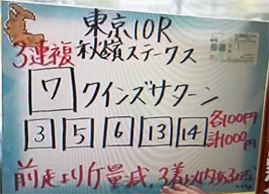 東京10R
3連複 秋嶺ステークス
7 クインズサターン
3 5 6 13 14 各100円
計1000円
前走より斤量減、3着以内ある